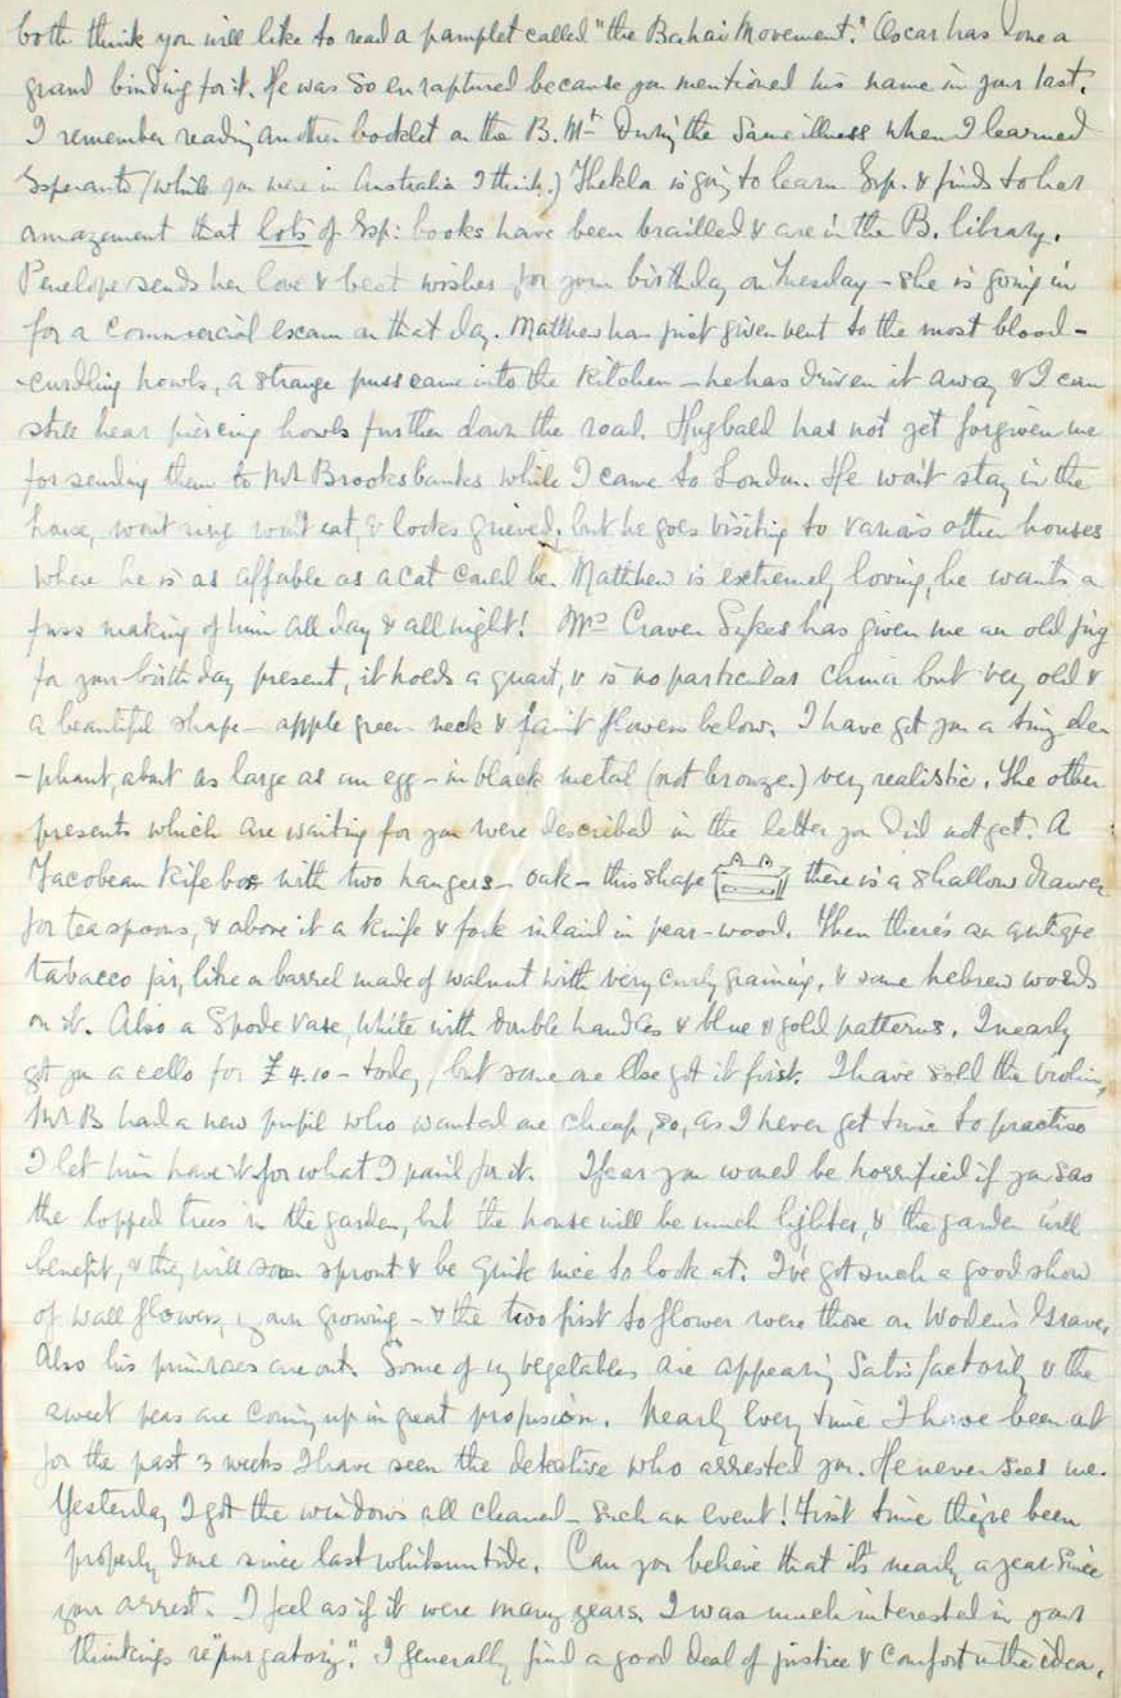 both think you will like to read a pamplet called "the Bahai Movement." Oscar has done a
grand binding for it. He was so enraptured because you mentioned his name in your last.
I remember reading another booklet on the B. Mt. During the same illness when I learned
Esperanto (while you were in Australia I think.) Thekla is going to learn Esp. & finds to her
amazement that lots of Esp: books have been brailled & are in the B. library.
Penelope sends her love & best wishes for your birthday on Tuesday - she is going in
for a Commercial exam on that day. Matthew has just given vent to the most blood-
-curdling howls, a strange puss came into the kitchen - he has driven it away & I can
still hear piercing howls further down the road. Hugbald has not yet forgiven me
for sending them to Mr Brooksbanks while I came to London. He won't stay in the
house, won't sing won't eat, & looks grieved, but he goes visiting to various other houses
where he is as affable as a cat could be. Matthew is extremely loving, he wants a
fuss making of him all day & all night! Mrs Craven Sykes has given me an old jug
for your birthday present, it holds a quart, & is no particular china but very old &
a beautiful shape - apple green neck & faint flowers below. I have got you a tiny ele-
-phant, about as large as an egg - in black metal (not bronze.) very realistic. The other
presents which are waiting for you were described in the letter you did not get. A
Jacobean Kife box with two hangers - oak - this shape there is a shallow drawer
for teaspoons, & above it a knife & fork inlaid in pear-wood. Then there's an antique
tabacco jar, like a barrel made of walnut with very curly graining, & some hebrew words
on it. Also a Spode Vase, white with double handles & blue & gold patterns. I nearly
got you a cello for £4.10 - today, but some one else got it first. I have sold the violin,
Mr B had a new pupil who wanted one cheap, so, as I never get time to practise
I let him have it for what I paid for it. I fear you would be horrified if you saw
the lopped trees in the garden, but the house will be much lighter, & the garden will
benefit, & they will soon sprout & be quite nice to look at. I've got such a good show
of wall flowers, my own growing - & the two first to flower were those on Woden's Grave.
Also his primroses are out. Some of my vegetables are appearing satisfactorily & the
sweet peas are coming up in great profusion. Nearly every time I have been out
for the past 3 weeks I have seen the detective who arrested you. He never sees me.
Yesterday I got the windows all cleaned - such an event! First time they've been
properly done since last whitsuntide. Can you believe that it's nearly a year since
your arrest. I feel as if it were many years. I was much interested in your
thinkings re "purgatory". I generally find a good deal of justice & comfort in the idea.